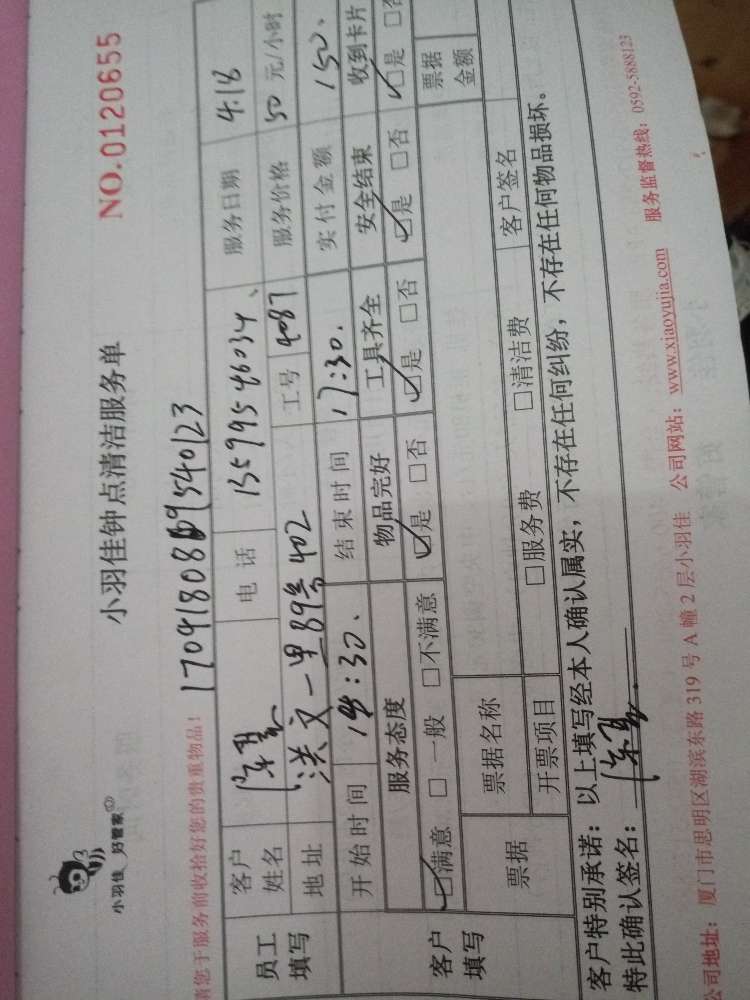 小羽佳 好管家
小羽佳钟点清洁服务单
NO.0120655
请您于服务前收拾好您的贵重物品！
员工填写
客户姓名 电话 13599546034 服务日期 4.18
地址 洪文一里89号402 工号 4087 服务价格 50元/小时
开始时间 14:30. 结束时间 17:30. 实付金额 150.
客户填写
服务态度 物品完好 工具齐全 安全结束 收到卡片
☑满意 □一般 □不满意 ☑是 □否 ☑是 □否 ☑是 □否 ☑是 □否
票据 票据名称 票据金额
开票项目 □服务费 □清洁费 客户签名
客户特别承诺：以上填写经本人确认属实，不存在任何纠纷，不存在任何物品损坏。
特此确认签名：
公司地址：厦门市思明区湖滨东路319号A幢2层小羽佳 公司网站：www.xiaoyujia.com 服务监督热线：0592-5888123